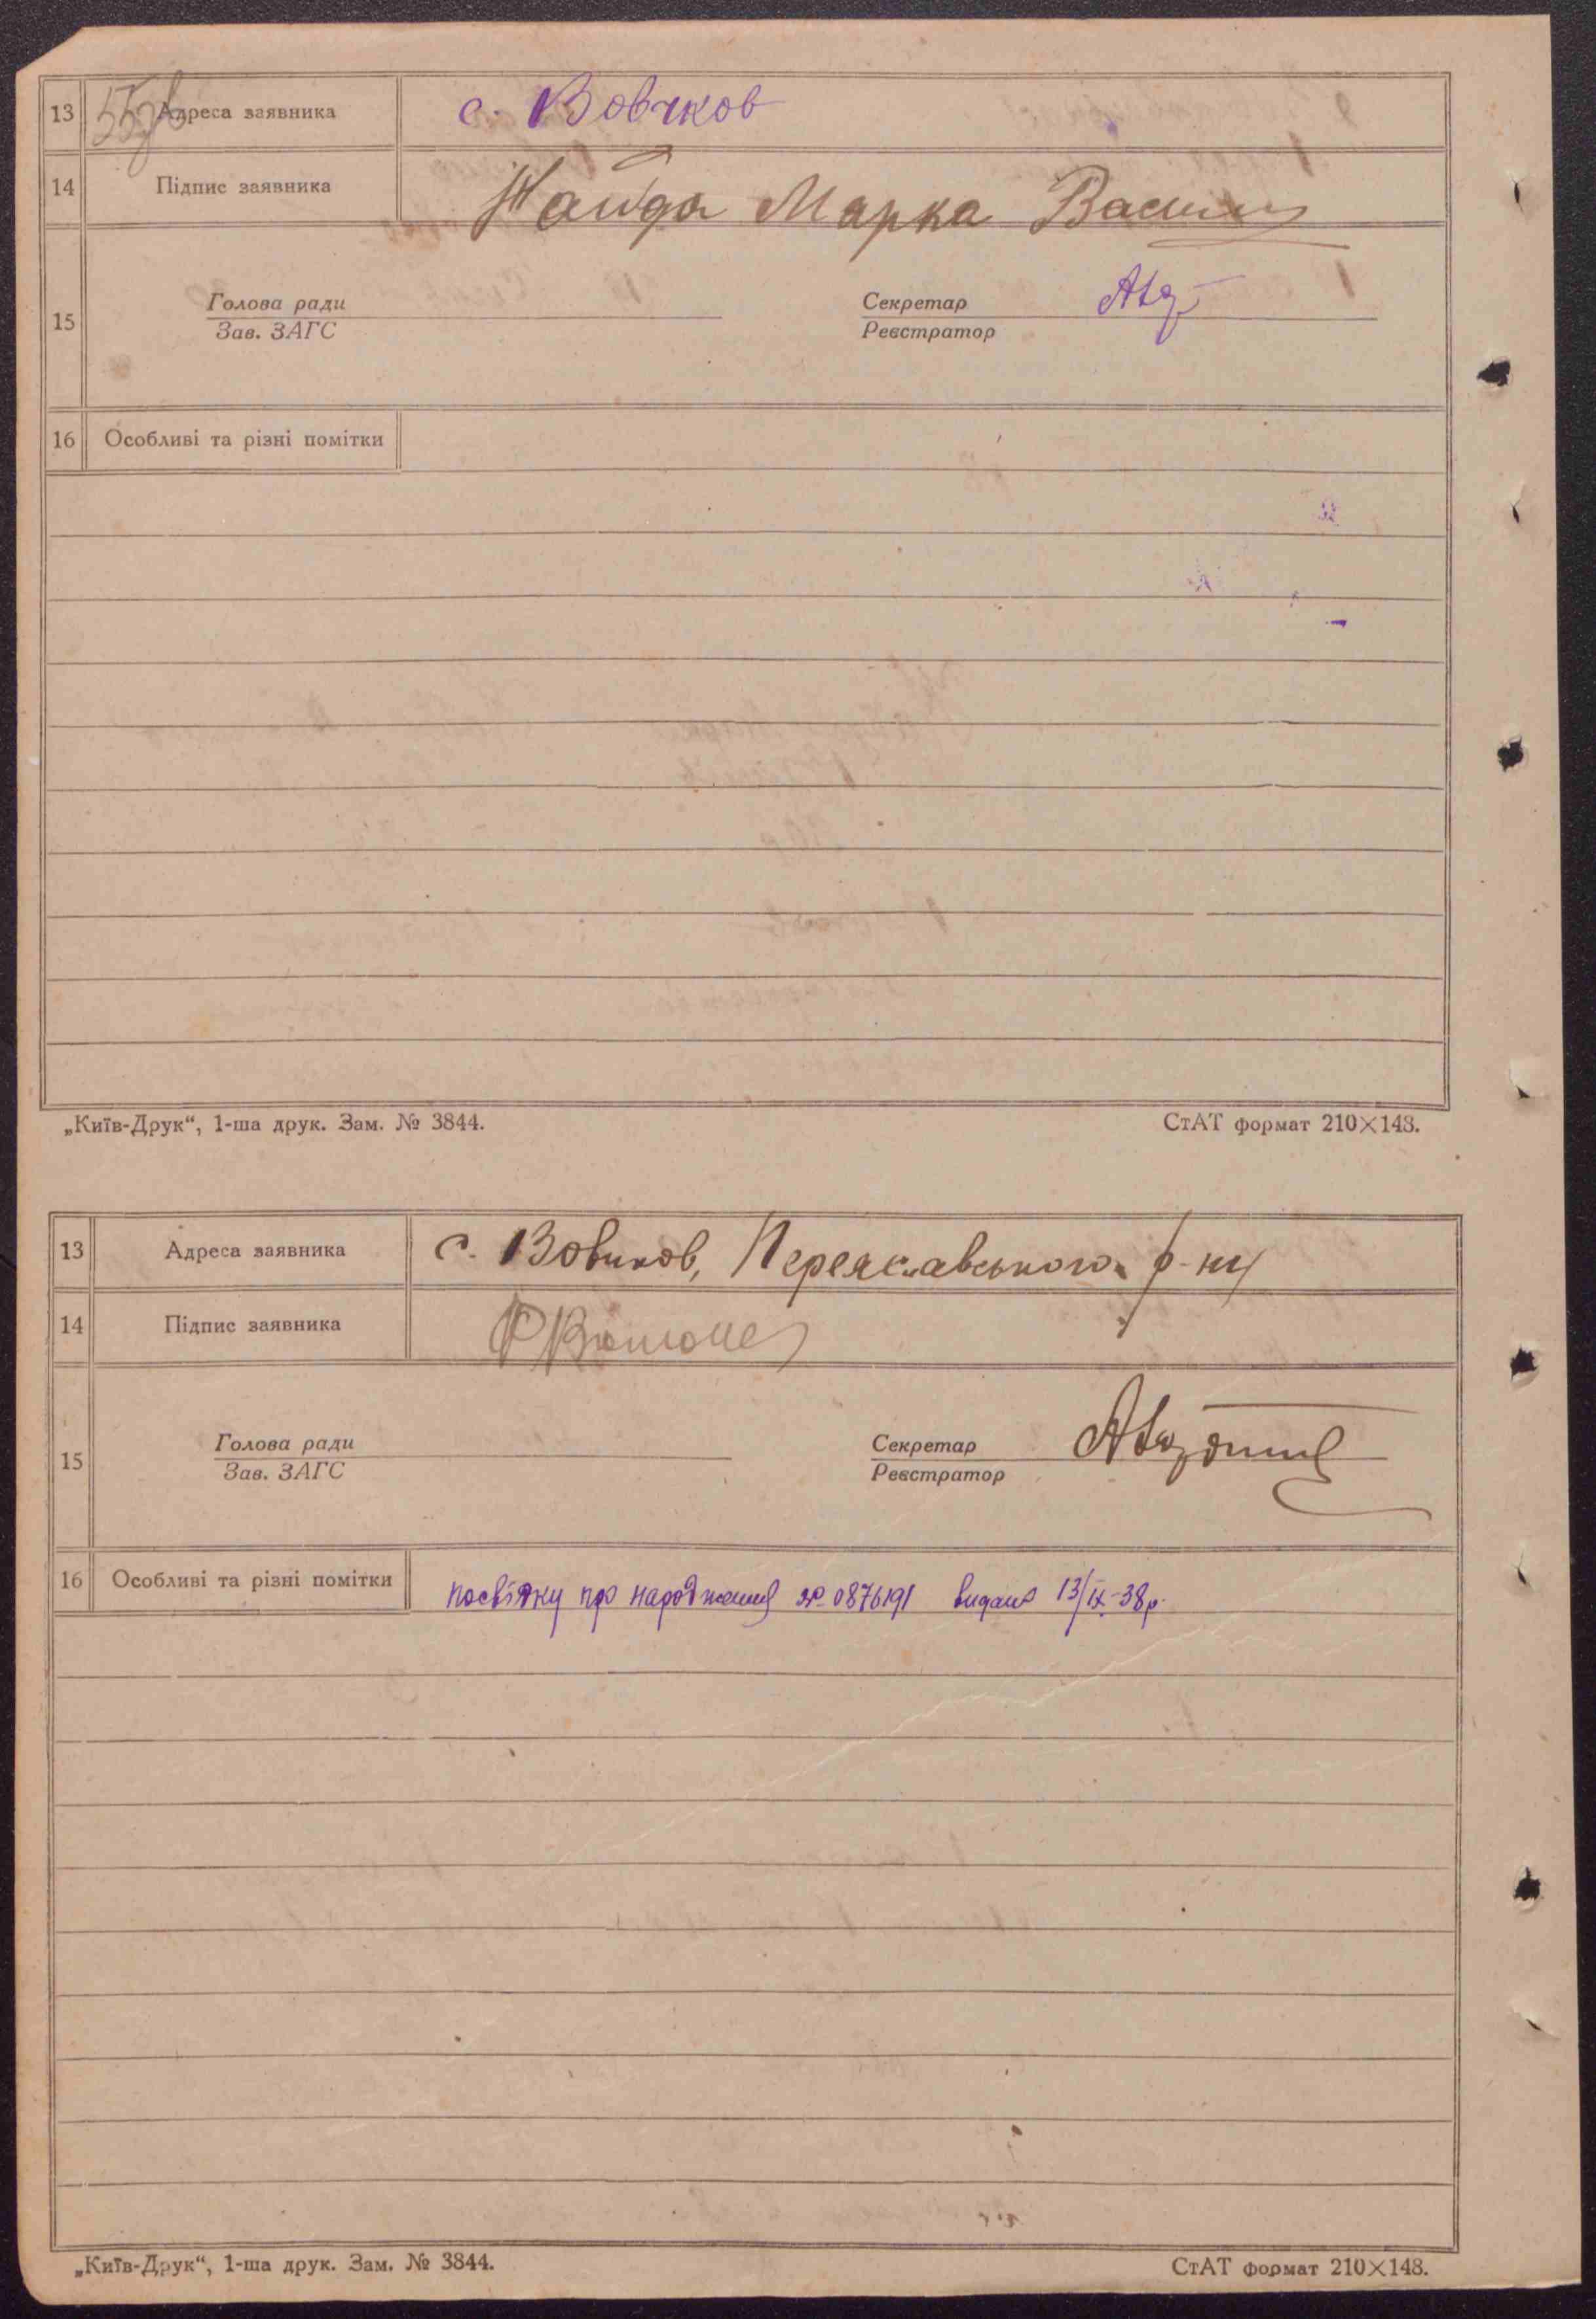 13 Адреса заявника с. Вовчков
55зв
14 Підпис заявника Найда Марка
15 Голова ради Секретар
Зав. ЗАГС Реєстратор
16 Особливі та різні помітки
„Київ-Друк“, 1-ша друк. Зам. № 3844. СтАТ формат 210×148.
13 Адреса заявника с. Вовчков, Переяславського р-ну
14 Підпис заявника
15 Голова ради Секретар
Зав. ЗАГС Реєстратор
16 Особливі та різні помітки посвідку про народження № 0876191 видано 13/IX-38р.
„Київ-Друк“, 1-ша друк. Зам. № 3844. СтАТ формат 210×148.